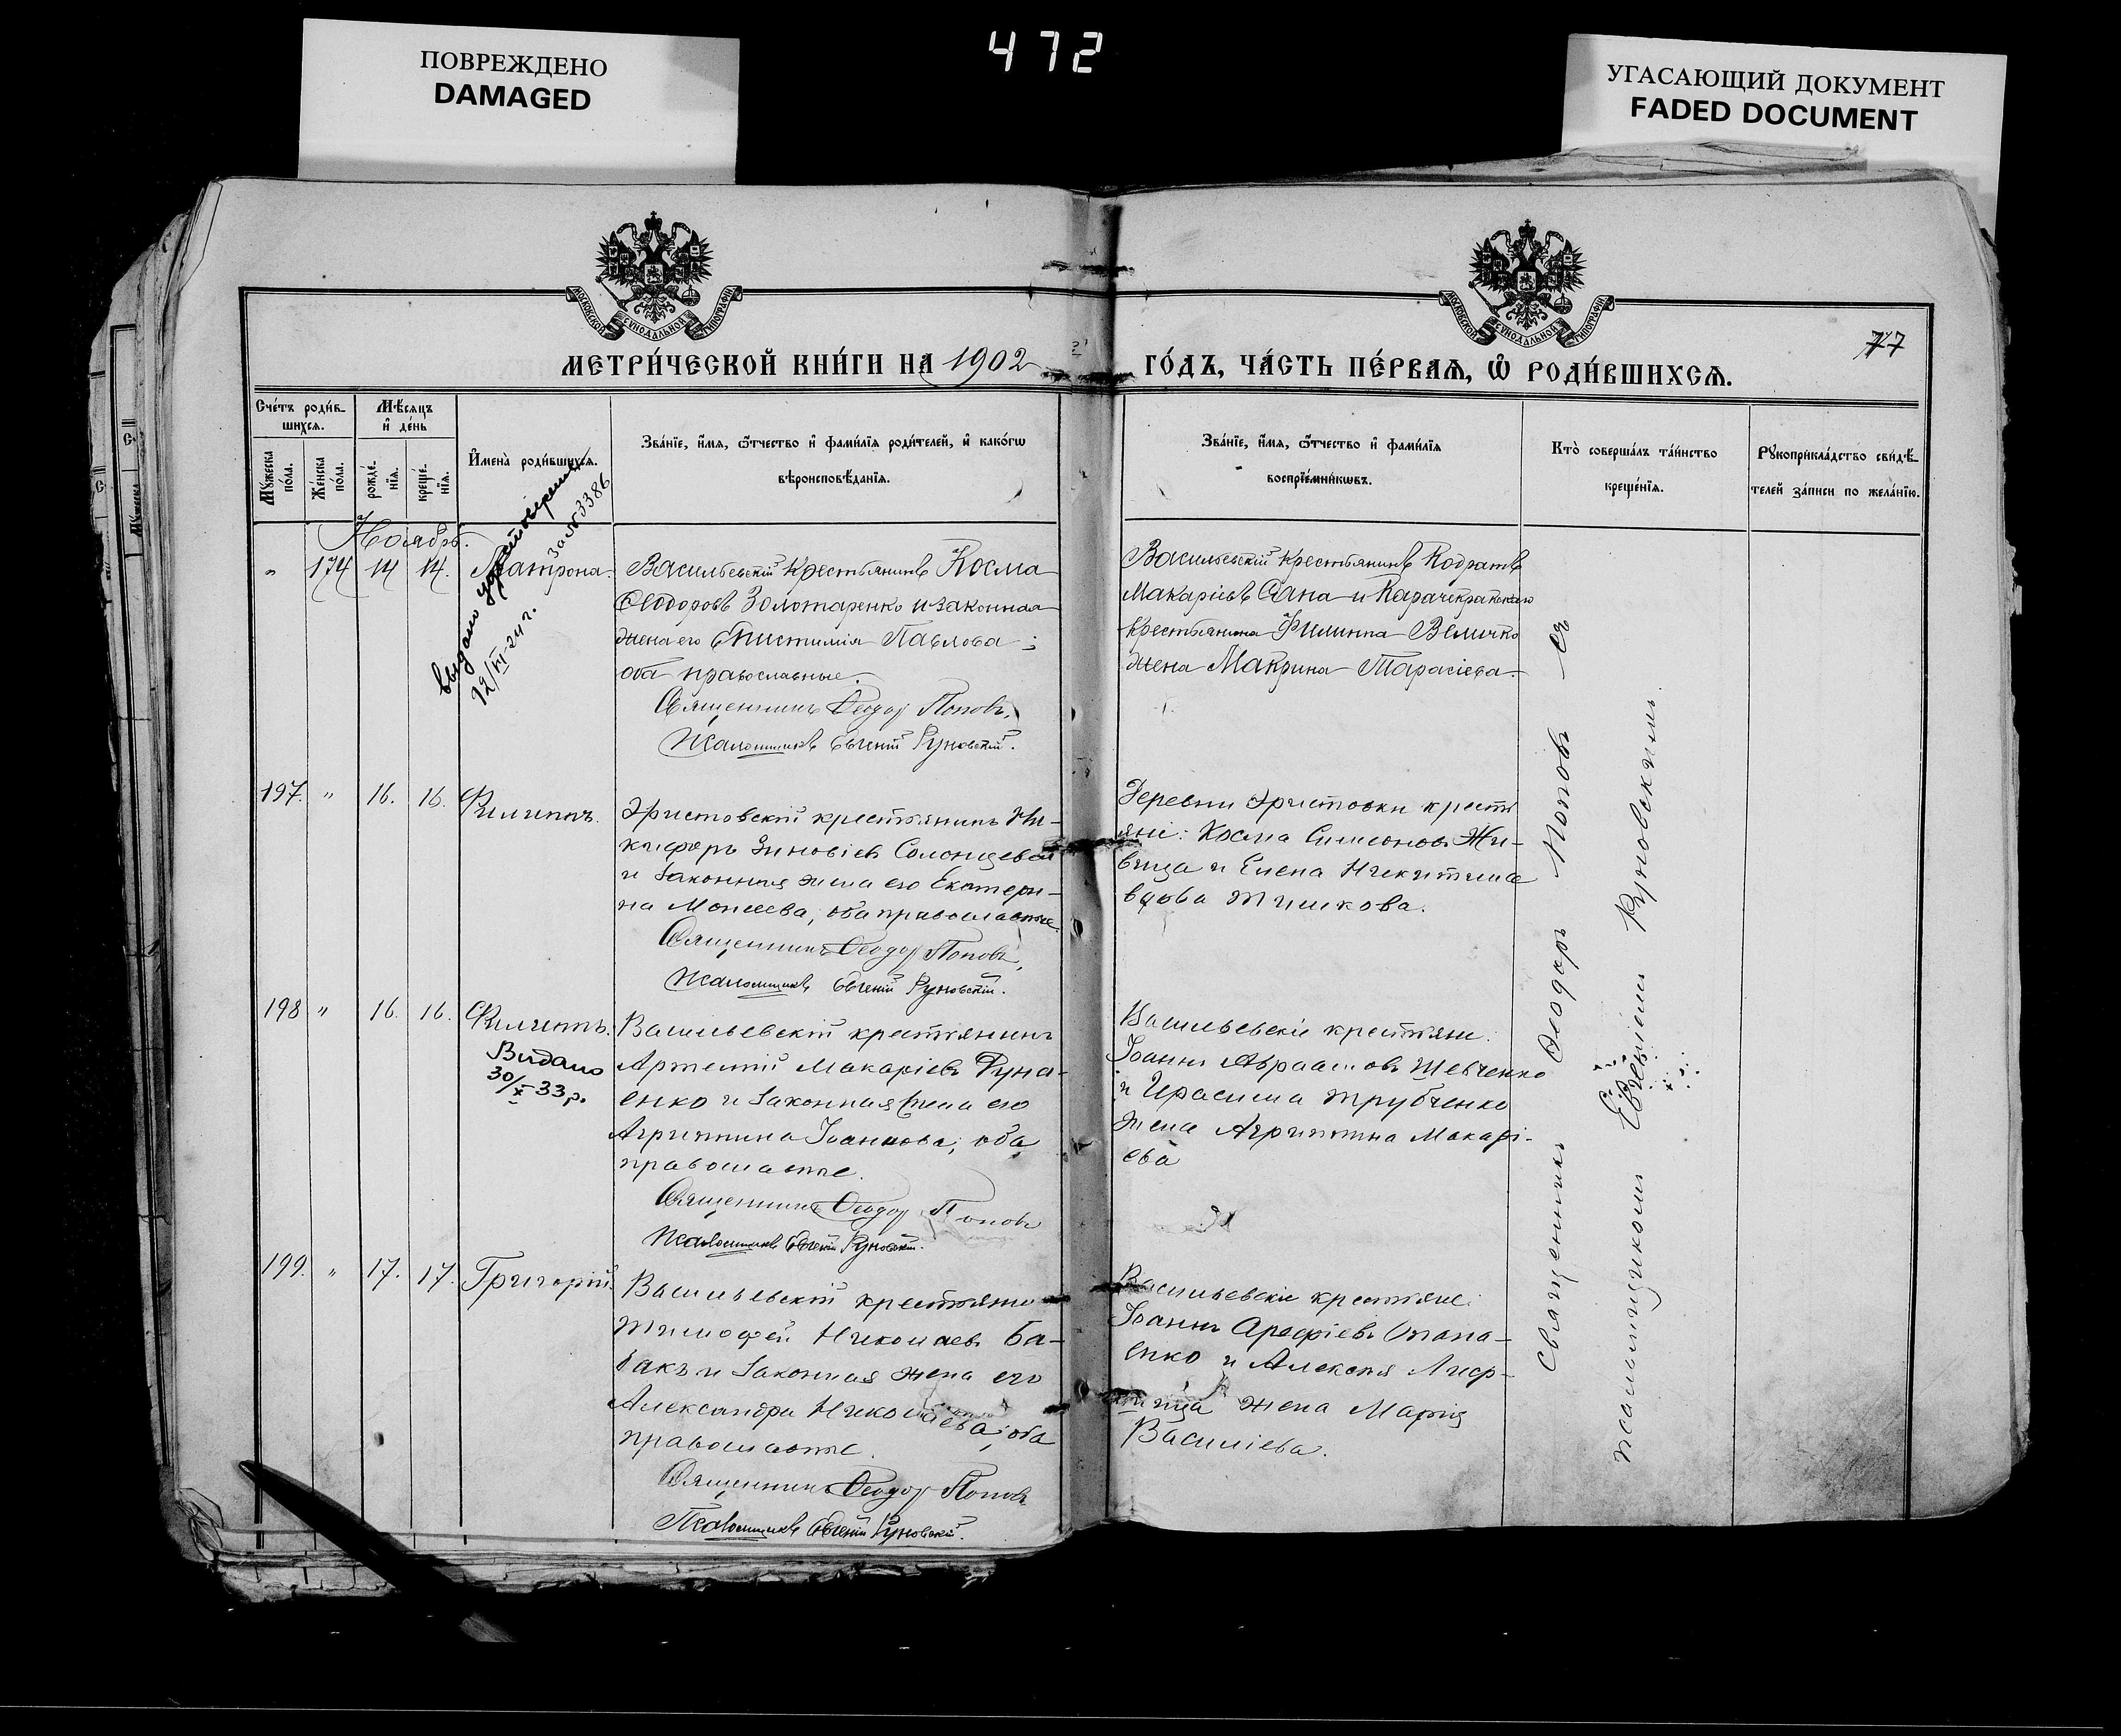 ПОВРЕЖДЕНО
DAMAGED
472
УГАСАЮЩИЙ ДОКУМЕНТ
FADED DOCUMENT
МОСКОВСКОЙ СѴНОДАЛЬНОЙ ТИПОГРАФІИ
МОСКОВСКОЙ СѴНОДАЛЬНОЙ ТИПОГРАФІИ
77
МЕТРИ́ЧЕСКОЙ КНИ́ГИ НА 1902
ГО́ДЪ, ЧА́СТЬ ПЕ́РВАѦ, Ѽ РОДИ́ВШИХСѦ.
Сче́тъ роди́в-
шихсѧ.
Мѣ́сѧцъ
и де́нь
Мꙋ́жеска
по́ла.
Же́нска
по́ла.
рожде́-
нїѧ.
креще́-
нїѧ.
И҆мена̀ роди́вшихсѧ.
Зва́нїе, и҆́мѧ, ѻ҆́тчество и҆ фами́лїѧ роди́телей, и҆ како́гѡ
вѣроисповѣ́данїѧ.
Зва́нїе, и҆́мѧ, ѻ҆́тчество и҆ фами́лїѧ
воспрїе́мникѡвъ.
Кто̀ соверша́лъ та́инство
креще́нїѧ.
Рꙋкоприкла́дство свидѣ́-
телей за́писи по жела́нїю.
Ноябрь.
" 174 14 14. Матрона.
выдано удостоверение
12/VI-24 г. за № 3386
Васильевскій крестьянинъ Косма
Ѳеодоровъ Золотаренко и законная
жена его Епистимія Павлова;
оба православные.
Священникъ Ѳеодор Поповъ,
Псаломщикъ Евгеній Руновскій.
Васильевскій крестьянинъ Кодратъ
Макаріевъ
крестьянина Филиппа Величко
жена Макрина Тарасіева.
197. " 16. 16. Филиппъ.
Христовскій крестьянинъ Ни-
кифоръ Зиновіевъ
и законная жена его Екатери-
на Моисеева, оба православные.
Священникъ Ѳеодор Поповъ,
Псаломщикъ Евгеній Руновскій.
Деревни Христовки кресть
яне: Косма Симеоновъ Жи-
вица и Елена Никитина
вдова Тишкова.
198 " 16. 16. Филиппъ.
Видано
30/X-33 р.
Васильевскій крестьянинъ
Артемій Макаріевъ Руна-
енко и законная жена его
Агриппина Іоаннова; оба
православные.
Священникъ Ѳеодор Поповъ
Псаломщикъ Евгеній Руновскій.
Васильевскіе крестьяне:
Іоаннъ Авраамовъ Шевченко
и Герасима Трубченко
жена Агриппина Макарі-
ева
199. " 17. 17. Григорій.
Васильевскій крестьянинъ
Тимофей Николаевъ Ба-
бакъ и законная жена его
Александра Николаева; оба
православные.
Священникъ Ѳеодор Поповъ
Псаломщикъ Евгеній Руновскій.
Васильевскіе крестьяне:
Іоаннъ Арефіевъ Опана-
енко и Алексія
жена Марія
Василіева.
Священникъ Ѳеодоръ Поповъ съ
псаломщикомъ Евгеніемъ Руновскимъ